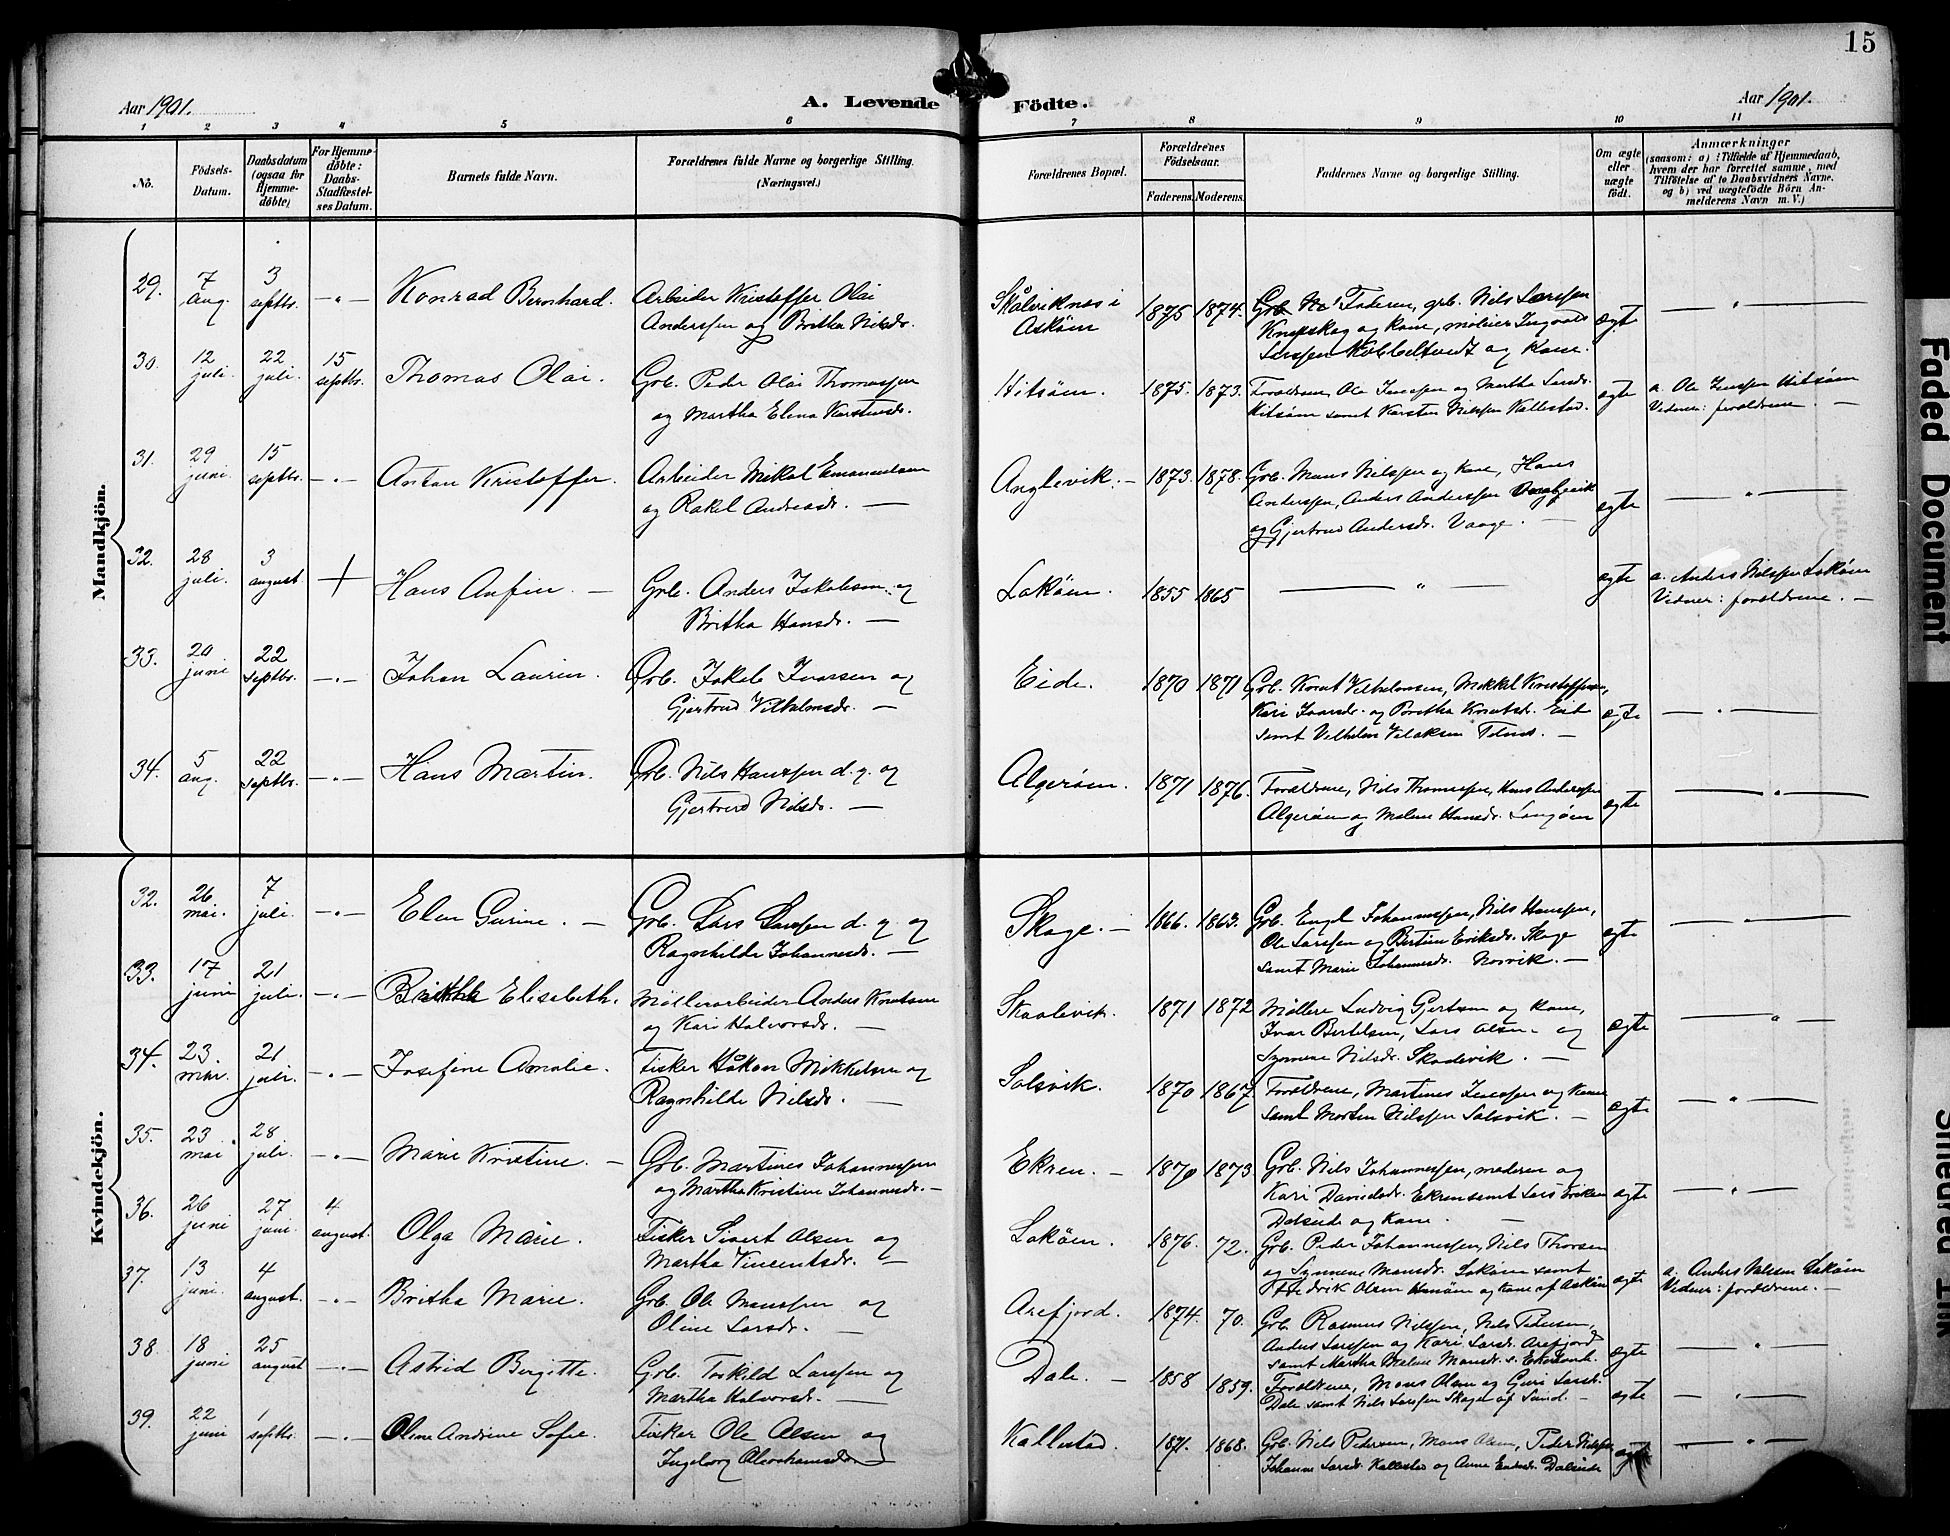 15
Aar 1901.
A. Levende Födte.
Aar 1901.
1 2 3 4 5 6 7 8 9 10 11
No.
Födsels-
Datum.
Daabsdatum
(ogsaa for
Hjemme-
døbte)
For Hjemme-
døbte:
Daabs-
Stadfæstel-
ses Datum.
Barnets fulde Navn.
Forældrenes fulde Navne og borgerlige Stilling.
(Næringsvei.)
Forældrenes Bopæl.
Forældrenes
Födselsaar.
Faderens. Moderens.
Faddernes Navne og borgerlige Stilling.
Om ægte
eller
uægte
födt.
Anmærkninger
(saasom: a) i Tilfælde af Hjemmedaab,
hvem der har forrettet samme, med
Tilföielse af to Daabsvidners Navne.
og b) ved uægtefödte Börn An-
melderens Navn m. V.)
Mandkjön.
29. 7 aug. 3 septbr. -"- Konrad Bernhard.
Arbeider Kristoffer Olai
Anderssen og Britha Nilsdr.
Skålviknes i
Askøen
1875 1874.
Faderen, grb. Nils Larssen
Knapskog og kone, møller Ingvald
Larssen Kobbeltvedt og kone.
ægte
30. 12 juli. 22 juli. 15 septbr. Thomas Olai.
Grb. Peder Olai Thomassen
og Martha Elina Karstensdr.
Hitsøen. 1875. 1873.
Forældrene, Ole Jenssen og Martha Larsdr.
Hitsøen samt Karsten Nilssen Kallestad.
ægte
a. Ole Jenssen Hitsøen
Vidner: forældrene. —
31. 29 juni. 15 septbr. -"- Anton Kristoffer.
Arbeider Mikal Emanuelsen
og Rakel Andreasdr. —
Anglevik. — 1873. 1878.
Grb. Mons Nilssen og kone, Hans
Anderssen, Anders Anderssen
og Gjertrud Andersdr. Vaage. —
ægte
32. 28 juli. 3 august + Hans Anfin. —
Grb. Anders Jakobsen og
Britha Hansdr. —
Lokøen. 1855 1865
— " —
ægte
a. Anders Nilssen Lokøen
Vidner: forældrene. —
33. 20 juni 22 septbr. -"- Johan Laurin.
Grb. Jakob Ivarsen og
Gjertrud Vilhelmsdr. —
Eide. 1870 1871
Grb. Knut Vilhelmsen, Mikkel Kristoffersen,
Kari Ivarsdr. og Britha Knutsdr. Eide
samt Vilhelm
ægte
34. 5 aug. 22 septbr. -"- Hans Martin.
Grb. Nils Hanssen d. y. og
Gjertrud Nilsdr. —
Algerøen. 1871 1876.
Forældrene, Nils Thomassen, Hans Anderssen
Algerøen og Malene Hansdr. Langøen
ægte
Kvindekjön.
32. 26 mai. 7 juli. -"- Elen Gurine. —
Grb. Lars Larssen d. y. og
Ragnhilde Johannesdr. —
Skoge. — 1866. 1863.
Grb. Engel Johannessen, Nils Hanssen,
Ole Larssen og Bertine Eriksdr. Skoge
samt Marie Johannesdr. Norvik. —
ægte
33. 17 juni 21 juli. -"- Britha Elisabeth.
Møllerarbeider Anders Knutsen
og Kari Halvorsdr. —
Skaalevik. 1871 1872
Møllere Ludvig Gjertsen og kone,
Ivar Bertelsen, Lars Olsen og
Synneve Nilsdr. Skaalevik. —
ægte
34. 23. mai. 21 juli. -"- Josefine Amalie.
Fisker Håkon Mikkelsen og
Ragnhilde Nilsdr. —
Solsvik. 1870 1867.
Forældrene, Martines Jenssen og kone
samt Morten Nilssen Solsvik. —
ægte
35. 23 mai 28 juli. -"- Marie Kristine. —
Grb. Martines Johannessen
og Martha Kristine Johannesdr. —
Ekren. — 1870 1873.
Grb. Nils Johannessen, moderen og
Kari Davidsdr. Ekren samt Lars Eriksen
Dalseide og kone. —
ægte
36. 26 juni 27 juni. 4 august. Olga Marie.
Fisker Sivert Olsen og
Martha Vincentsdr. —
Lokøen. 1876. 72.
Grb. Peder Johannessen, Nils Thorsen
og Synneve Monsdr. Lokøen samt
Hedrik Olsen og kone af Askøen
ægte
a. Anders Nilssen Lokøen
Vidner: forældrene. —
37. 13 juni. 4 august. -"- Britha Marie.
Grb. Ole Monssen og
Oline Larsdr. —
Arefjord. 1874. 70.
Grb. Rasmus Nilssen, Nils Pedersen,
Anders Larssen og Kari Larsdr. Arefjord
samt Martha Malene Monsdr.
ægte
38. 18 juni 25 august -"- Astrid Bergitte.
Grb. Torkild Larssen og
Martha Halvorsdr. —
Dale. — 1858 1859.
Forældrene, Mons Olsen og Guri Larsdr.
Dale samt Nils Larssen Skoge af Sund. —
ægte
39. 22 juni 1 septbr. -"- Oline Andrine Sofie.
Fisker Ole Olsen og
Ingeborg
Kallestad. 1871. 1868.
Grb. Nils Pedersen, Mons Olsen, Peder Nilssen
Johanne Larsdr. Kallestad og Anne Dalseide
ægte
Faded Document
Smeared Ink